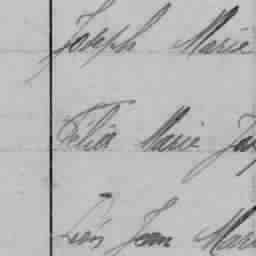 Joseph Marie
Félix Marie
Léon Jean Mari